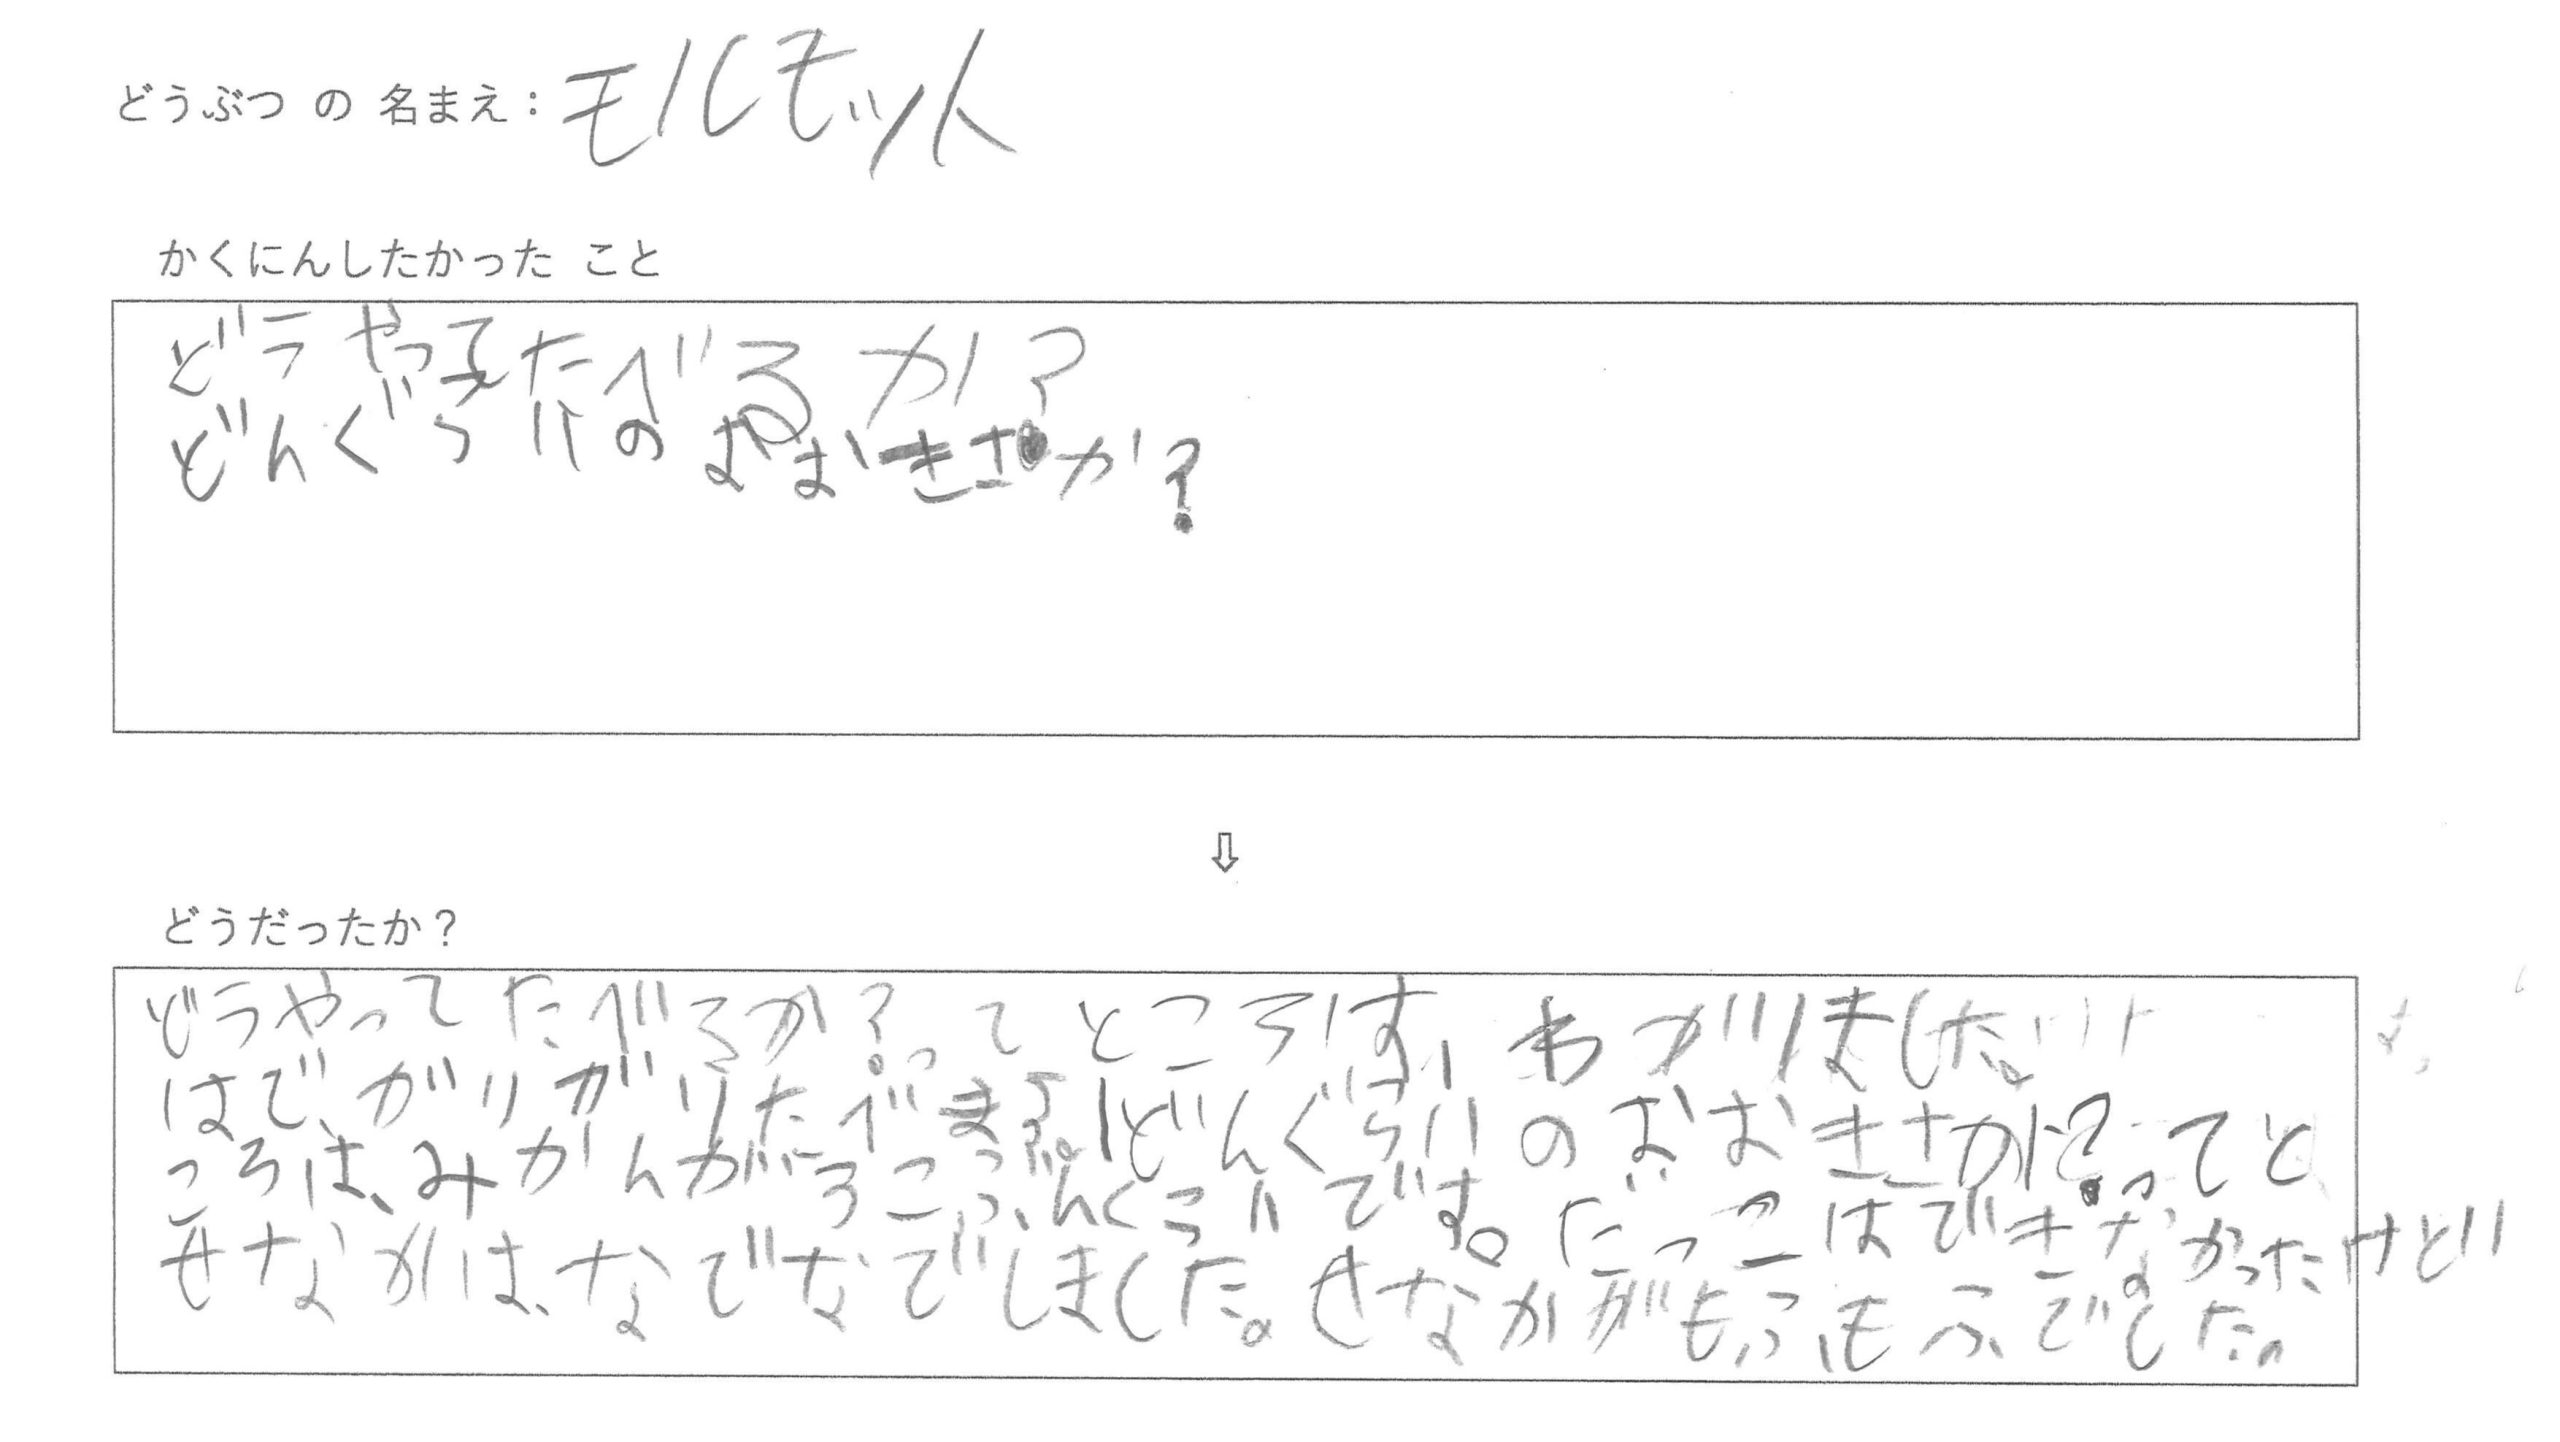 どうぶつ の 名まえ：モルモット
かくにんしたかった こと
どうやってたべるか？
どんぐらいのおおきさか？
⇩
どうだったか？
どうやってたべるか？ってところは、わかりました。
はで、がりがりたべます。どんぐらいのおおきさか？ってと
ころは、みかんがだろこっぶんくらいです。だっこはできなかったけど
せなかは、なでなでしました。せなかがもふもふでした。